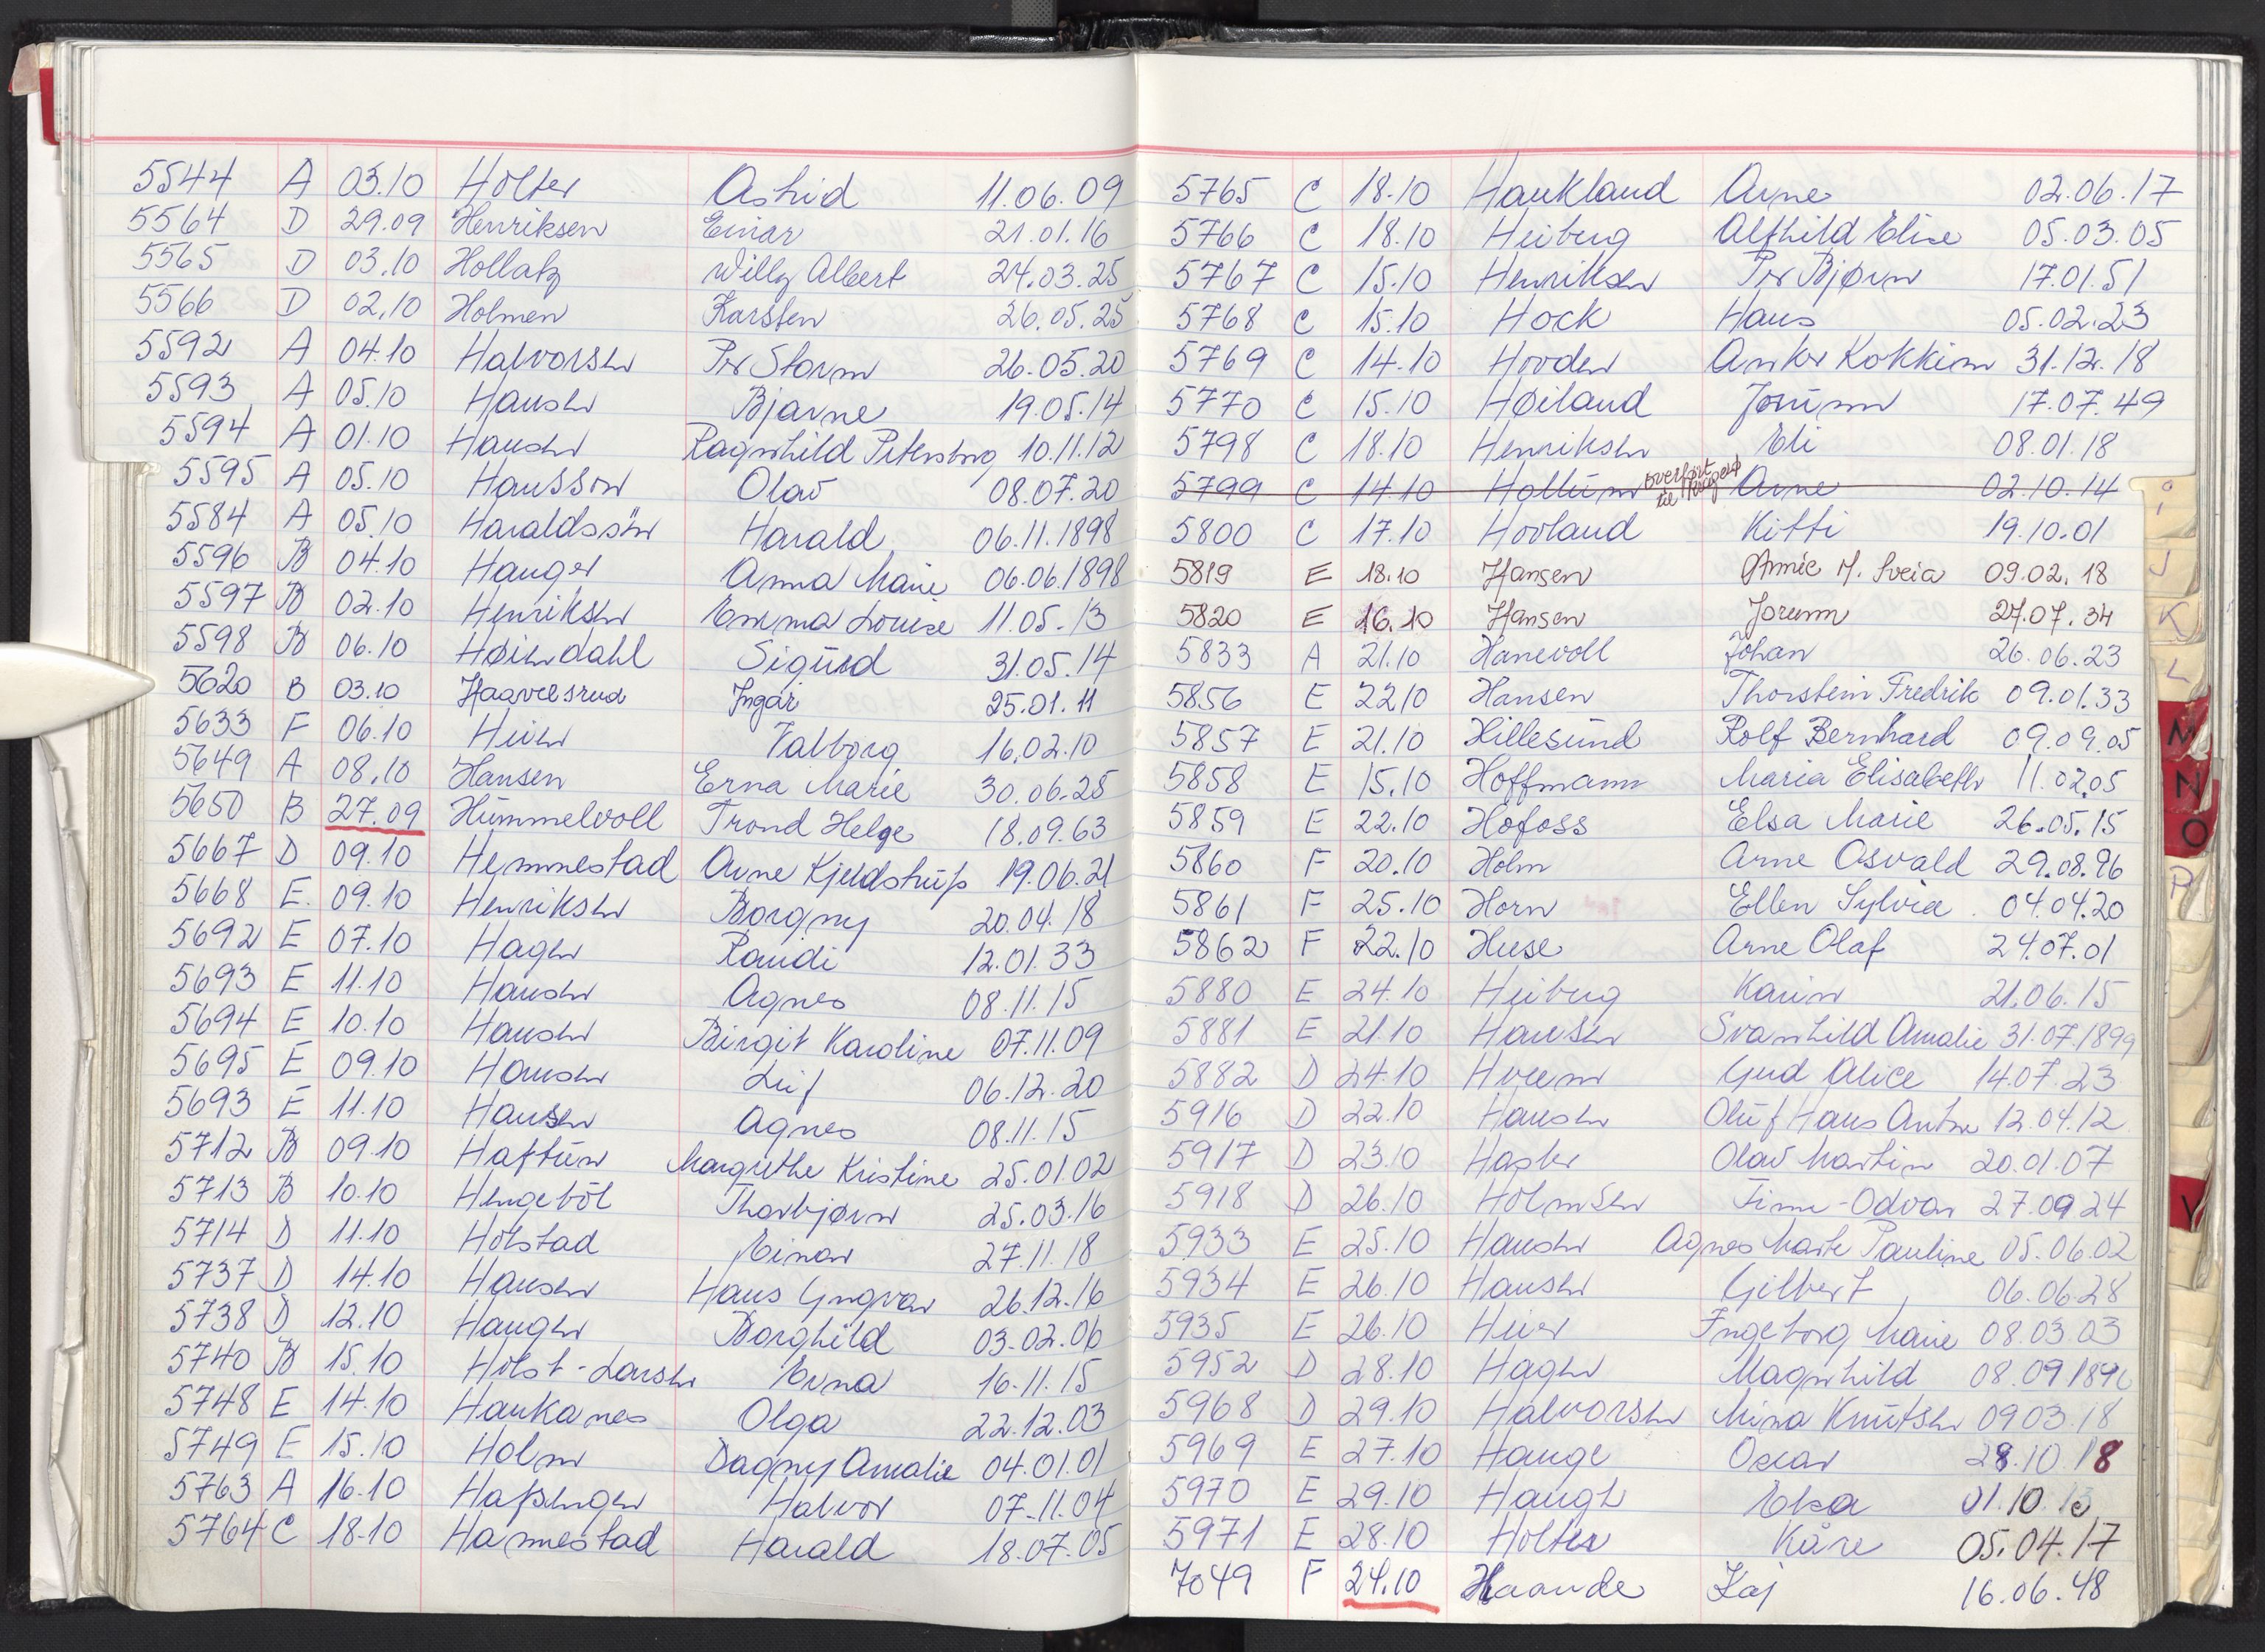 5544 A 03.10 Holter Astrid 11.06.09
5564 D 29.09 Henriksen Einar 21.01.16
5565 D 03.10 Hollatz Willy Albert 24.03.25
5566 D 02.10 Holmen Karsten 26.05.25
5592 A 04.10 Halvorsen Per Storm 26.05.20
5593 A 05.10 Hansen Bjarne 19.05.14
5594 A 01.10 Hansen Ragnhild Petersbrg 10.11.12
5595 A 05.10 Hansson Olav 08.07.20
5584 A 05.10 Haraldssön Harald 06.11.1898
5596 B 04.10 Hauger Anna Marie 06.06.1898
5597 B 02.10 Henriksen Emma Louise 11.05.13
5598 B 06.10 Høiendahl Sigurd 31.05.14
5620 B 03.10 Haavelsrud Ingar 25.01.11
5633 F 06.10 Heien Valborg 16.02.10
5649 A 08.10 Hansen Erna Marie 30.06.25
5650 B 27.09 Hummelvoll Trond Helge 18.09.63
5667 D 09.10 Hemmestad Arne Kjeldstrup 19.06.21
5668 E. 09.10 Henriksen Borgny 20.04.18
5692 E 07.10 Hagen Randi 12.01.33
5693 E 11.10 Hansen Agnes 08.11.15
5694 E 10.10 Hansen Birgit Karoline 07.11.09
5695 E 09.10 Hansen Leif 06.12.20
5693 E 11.10 Hansen Agnes 08.11.15
5712 B 09.10 Haftun Margrethe Kristine 25.01.02
5713 B 10.10 Hengeböl Thorbjørn 25.03.16
5714 D 11.10 Holstad Einar 27.11.18
5737 D 14.10 Hansen Hans Yngvar 26.12.16
5738 D 12.10 Haugen Borghild 03.02.06
5740 B 15.10 Holst-Larsen Erna 16.11.15
5748 E 14.10 Haukanes Olga 22.12.03
5749 E 15.10 Holm Dagny Amalie 04.01.01
5763 A 16.10 Hafsengen Halvor 07.11.04
5764 C 18.10 Hamestad Harald 18.07.05
5765 C 18.10 Haukland Arne 02.06.17
5766 C 18.10 Heiberg Alfhild Elise 05.03.05
5767 C 15.10 Henriksen Per Bjørn 17.01.51
5768 C 15.10 Hock Hans 05.02.23
5769 C 14.10 Hovden Anker Kokkim 31.12.18
5770 C 15.10 Høiland Jorunn 17.07.49
5798 C 18.10 Henriksen Eli 08.01.18
5799 C 14.10 Hollum overført til Arne 02.10.14
5800 C 17.10 Hovland Kitti 19.10.01
5819 E 18.10 Hansen Annie M. Sveia 09.02.18
5820 E 16.10 Hansen Jorunn 27.07.34
5833 A 21.10 Hanevoll Johan 26.06.23
5856 E 22.10 Hansen Thorstein Fredrik 09.01.33
5857 E 21.10 Hillesund Rolf Bernhard 09.09.05
5858 E 15.10 Hoffmann Maria Elisabeth 11.02.05
5859 E 22.10 Hofoss Elsa Marie 26.05.15
5860 F 20.10 Holm Arne Osvald 29.08.96
5861 F 25.10 Horn Ellen Sylvia 04.04.20
5862 F 22.10 Huse Arne Olaf 24.07.01
5880 E 24.10 Heiberg Karin 21.06.15
5881 E 21.10 Hansen Svanhild Amalie 31.07.1899
5882 D 24.10 Hveem Gud Alice 14.07.23
5916 D 22.10 Hansen Oluf Hans Anton 12.04.12
5917 D 23.10 Hasler Olav Martin 20.01.07
5918 D 26.10 Holmsen Finn-Odvar 27.09.24
5933 E 25.10 Hansen Agnes Marte Pauline 05.06.02
5934 E 26.10 Hansen Gilbert 06.06.28
5935 E 26.10 Heier Ingeborg Marie 08.03.03
5952 D 28.10 Hagen Magnhild 08.09.189
5968 D 29.10 Halvorsen Mina Knutsen 09.03.18
5969 E 27.10 Hauge Oscar 28.10.18
5970 E 29.10 Haugh Elsa 01.10.13
5971 E 28.10 Holter Kåre 05.04.17
7049 F 24.10 Haande Kaj 16.06.48
i
J
K
L
M
N
O
P
V